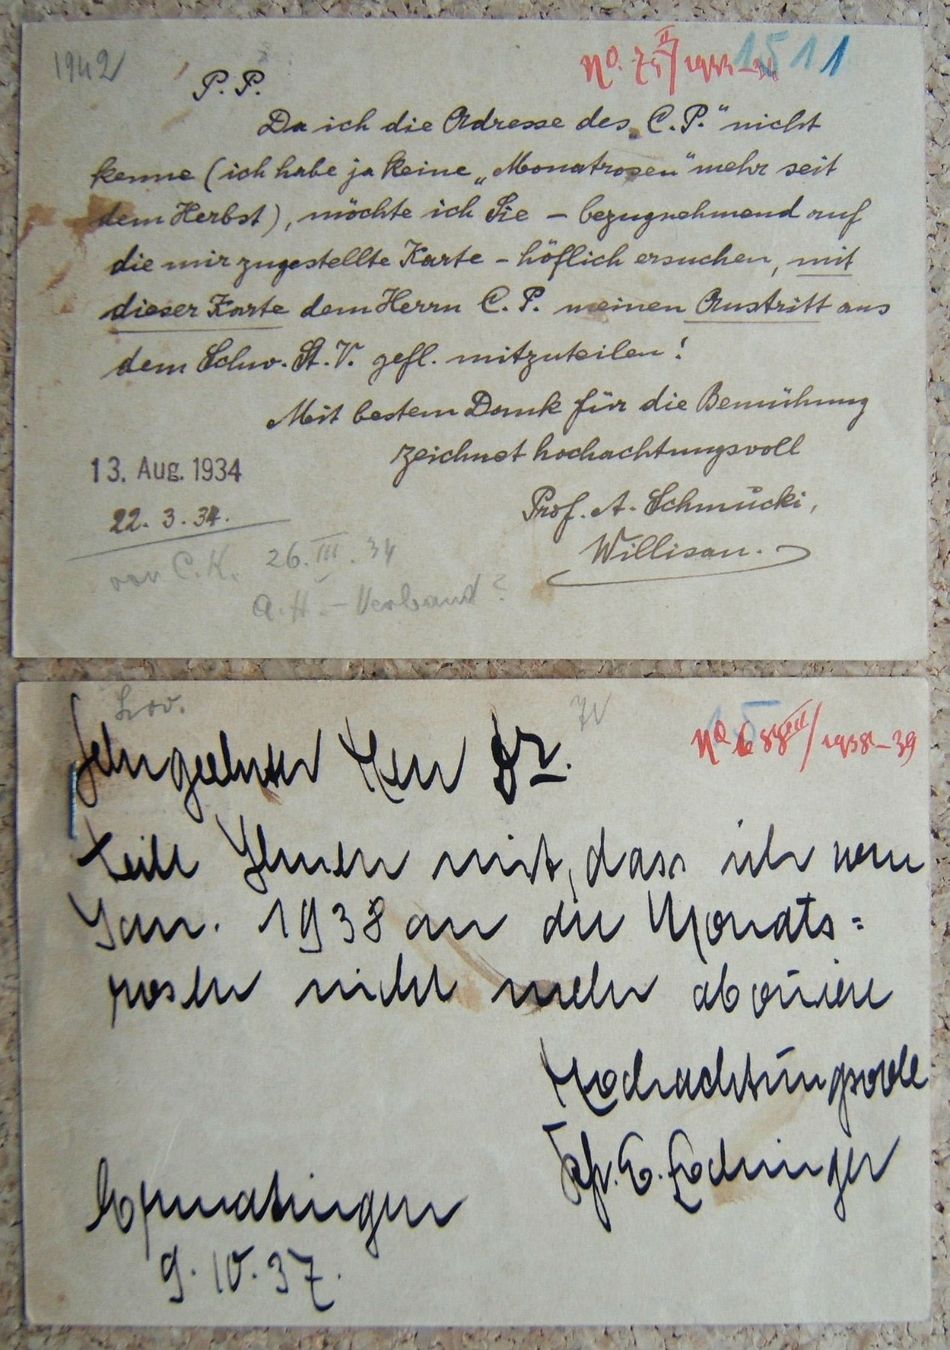 1942
No. 75 II/1933-34 1511
P. P.
Da ich die Adresse des „C.P." nicht
kenne (ich habe ja keine „Monatrosen" mehr seit
dem Herbst), möchte ich Sie – bezugnehmend auf
die mir zugestellte Karte – höflich ersuchen, mit
dieser Karte dem Herrn C. P. meinen Austritt aus
dem Schw. St. V. gefl. mitzuteilen!
Mit bestem Dank für die Bemühung
zeichnet hochachtungsvoll
13. Aug. 1934
Prof. A. Schmucki,
22. 3. 34.
Willisau.
von C. K. 26. III. 34
A. H. – Verband?
No 688 III/1938-39
Sehrgeehrter Herr Dr.
Teile Ihnen mit, dass ich vom
Jan. 1938 an die Monats=
rosen nicht mehr aboniere
Hochachtungsvoll
E. Eschinger
9. 10. 37.